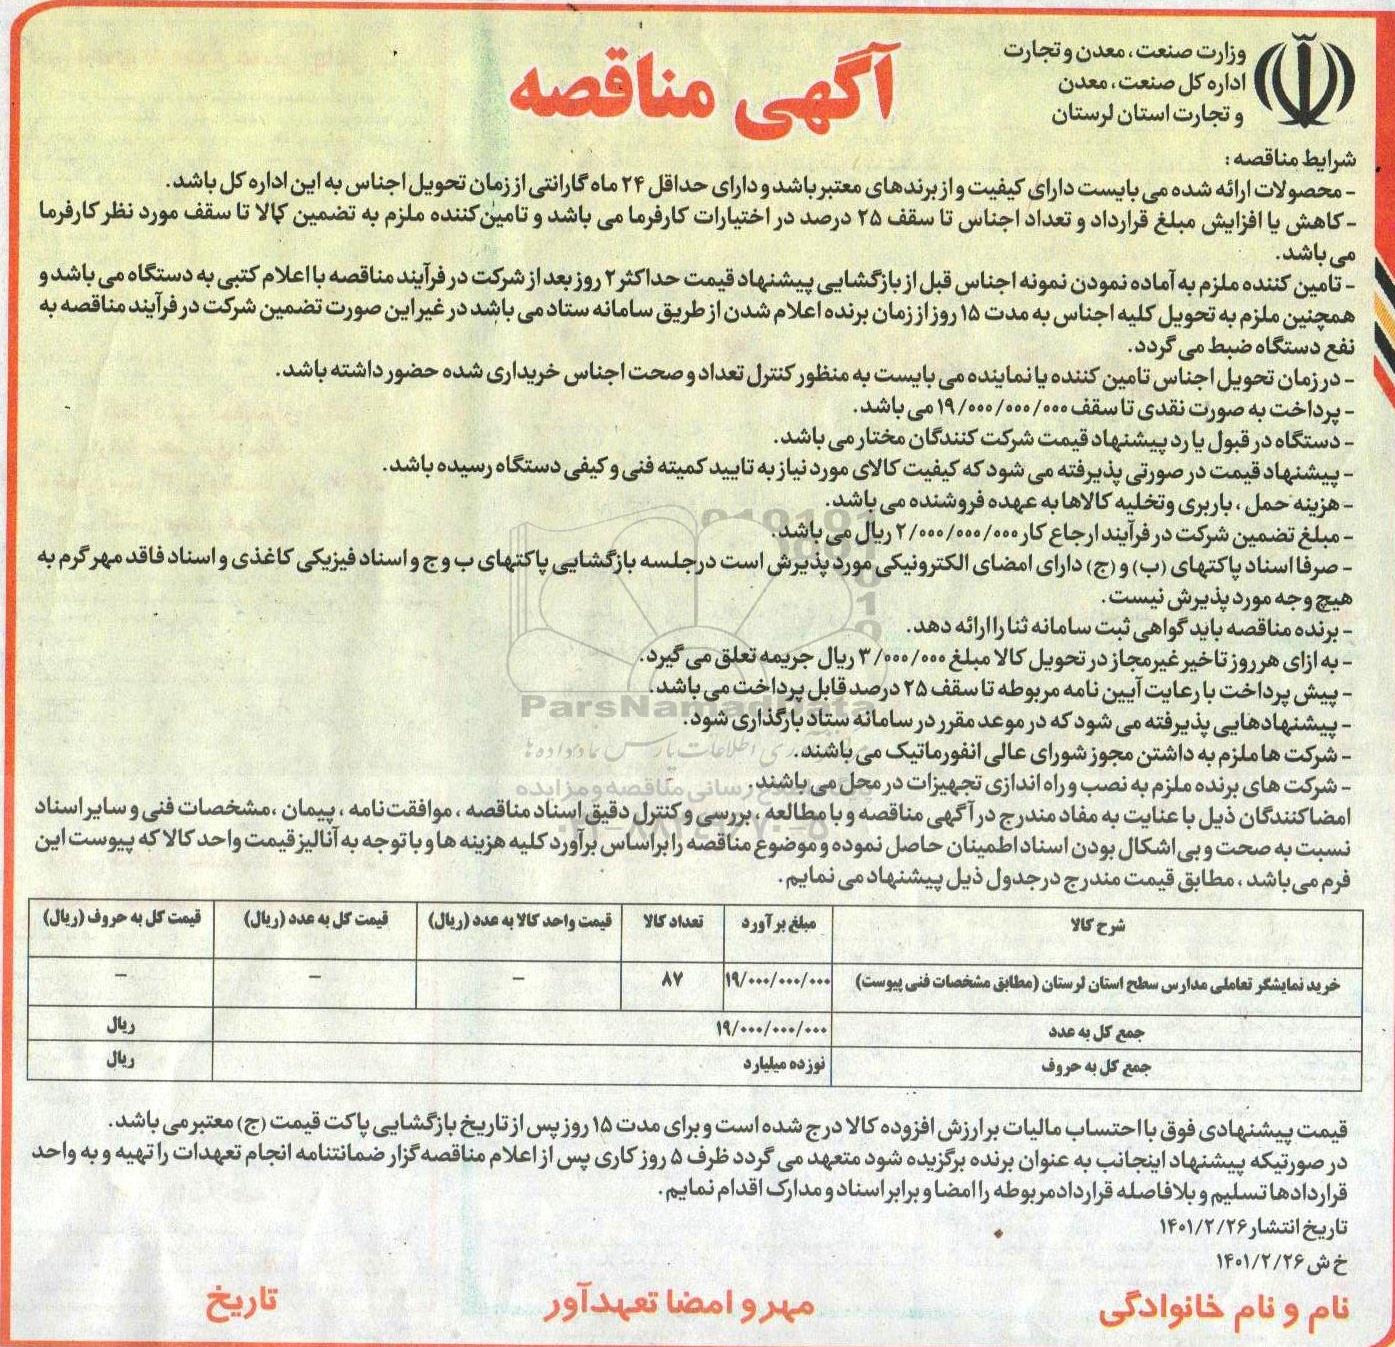 وزارت صنعت، معدن و تجارت
اداره کل صنعت، معدن
و تجارت استان لرستان
آگهی مناقصه
شرایط مناقصه :
- محصولات ارائه شده می بایست دارای کیفیت و از برندهای معتبر باشد و دارای حداقل ۲۴ ماه گارانتی از زمان تحویل اجناس به این اداره کل باشد.
- کاهش یا افزایش مبلغ قرارداد و تعداد اجناس تا سقف ۲۵ درصد در اختیارات کارفرما می باشد و تامین‌کننده ملزم به تضمین کالا تا سقف مورد نظر کارفرما
می باشد.
- تامین کننده ملزم به آماده نمودن نمونه اجناس قبل از بازگشایی پیشنهاد قیمت حداکثر ۲ روز بعد از شرکت در فرآیند مناقصه با اعلام کتبی به دستگاه می باشد و
همچنین ملزم به تحویل کلیه اجناس به مدت ۱۵ روز از زمان برنده اعلام شدن از طریق سامانه ستاد می باشد در غیر این صورت تضمین شرکت در فرآیند مناقصه به
نفع دستگاه ضبط می گردد.
- در زمان تحویل اجناس تامین کننده یا نماینده می بایست به منظور کنترل تعداد و صحت اجناس خریداری شده حضور داشته باشد.
- پرداخت به صورت نقدی تا سقف ۱۹/۰۰۰/۰۰۰/۰۰۰ می باشد.
- دستگاه در قبول یا رد پیشنهاد قیمت شرکت کنندگان مختار می باشد.
- پیشنهاد قیمت در صورتی پذیرفته می شود که کیفیت کالای مورد نیاز به تایید کمیته فنی و کیفی دستگاه رسیده باشد.
- هزینه حمل ، باربری و تخلیه کالاها به عهده فروشنده می باشد.
- مبلغ تضمین شرکت در فرآیند ارجاع کار ۲/۰۰۰/۰۰۰/۰۰۰ ریال می باشد.
- صرفا اسناد پاکتهای (ب) و (ج) دارای امضای الکترونیکی مورد پذیرش است در جلسه بازگشایی پاکتهای ب و ج و اسناد فیزیکی کاغذی و اسناد فاقد مهر گرم به
هیچ وجه مورد پذیرش نیست.
- برنده مناقصه باید گواهی ثبت سامانه ثنا را ارائه دهد.
- به ازای هر روز تاخیر غیرمجاز در تحویل کالا مبلغ ۳/۰۰۰/۰۰۰ ریال جریمه تعلق می گیرد.
- پیش پرداخت با رعایت آیین نامه مربوطه تا سقف ۲۵ درصد قابل پرداخت می باشد.
ParsNamadData
- پیشنهادهایی پذیرفته می شود که در موعد مقرر در سامانه ستاد بارگذاری شود.
- شرکت ها ملزم به داشتن مجوز شورای عالی انفورماتیک می باشند.
- شرکت های برنده ملزم به نصب و راه اندازی تجهیزات در محل می باشند.
امضاکنندگان ذیل با عنایت به مفاد مندرج در آگهی مناقصه و با مطالعه ، بررسی و کنترل دقیق اسناد مناقصه ، موافقت‌نامه ، پیمان ،مشخصات فنی و سایر اسناد
نسبت به صحت و بی اشکال بودن اسناد اطمینان حاصل نموده و موضوع مناقصه را براساس برآورد کلیه هزینه ها و با توجه به آنالیز قیمت واحد کالا که پیوست این
فرم می‌باشد ، مطابق قیمت مندرج در جدول ذیل پیشنهاد می نمایم.
شرح کالا مبلغ برآورد تعداد کالا قیمت واحد کالا به عدد (ریال) قیمت کل به عدد (ریال) قیمت کل به حروف (ریال)
خرید نمایشگر تعاملی مدارس سطح استان لرستان (مطابق مشخصات فنی پیوست) ۱۹/۰۰۰/۰۰۰/۰۰۰ ۸۷ – – –
جمع کل به عدد ۱۹/۰۰۰/۰۰۰/۰۰۰ ریال
جمع کل به حروف نوزده میلیارد ریال
قیمت پیشنهادی فوق با احتساب مالیات بر ارزش افزوده کالا درج شده است و برای مدت ۱۵ روز پس از تاریخ بازگشایی پاکت قیمت (ج) معتبر می باشد.
در صورتیکه پیشنهاد اینجانب به عنوان برنده برگزیده شود متعهد می گردد ظرف ۵ روز کاری پس از اعلام مناقصه‌گزار ضمانتنامه انجام تعهدات را تهیه و به واحد
قراردادها تسلیم و بلافاصله قرارداد مربوطه را امضا و برابر اسناد و مدارک اقدام نمایم.
تاریخ انتشار ۱۴۰۱/۲/۲۶
خ ش ۱۴۰۱/۲/۲۶
نام و نام خانوادگی مهر و امضا تعهدآور تاریخ